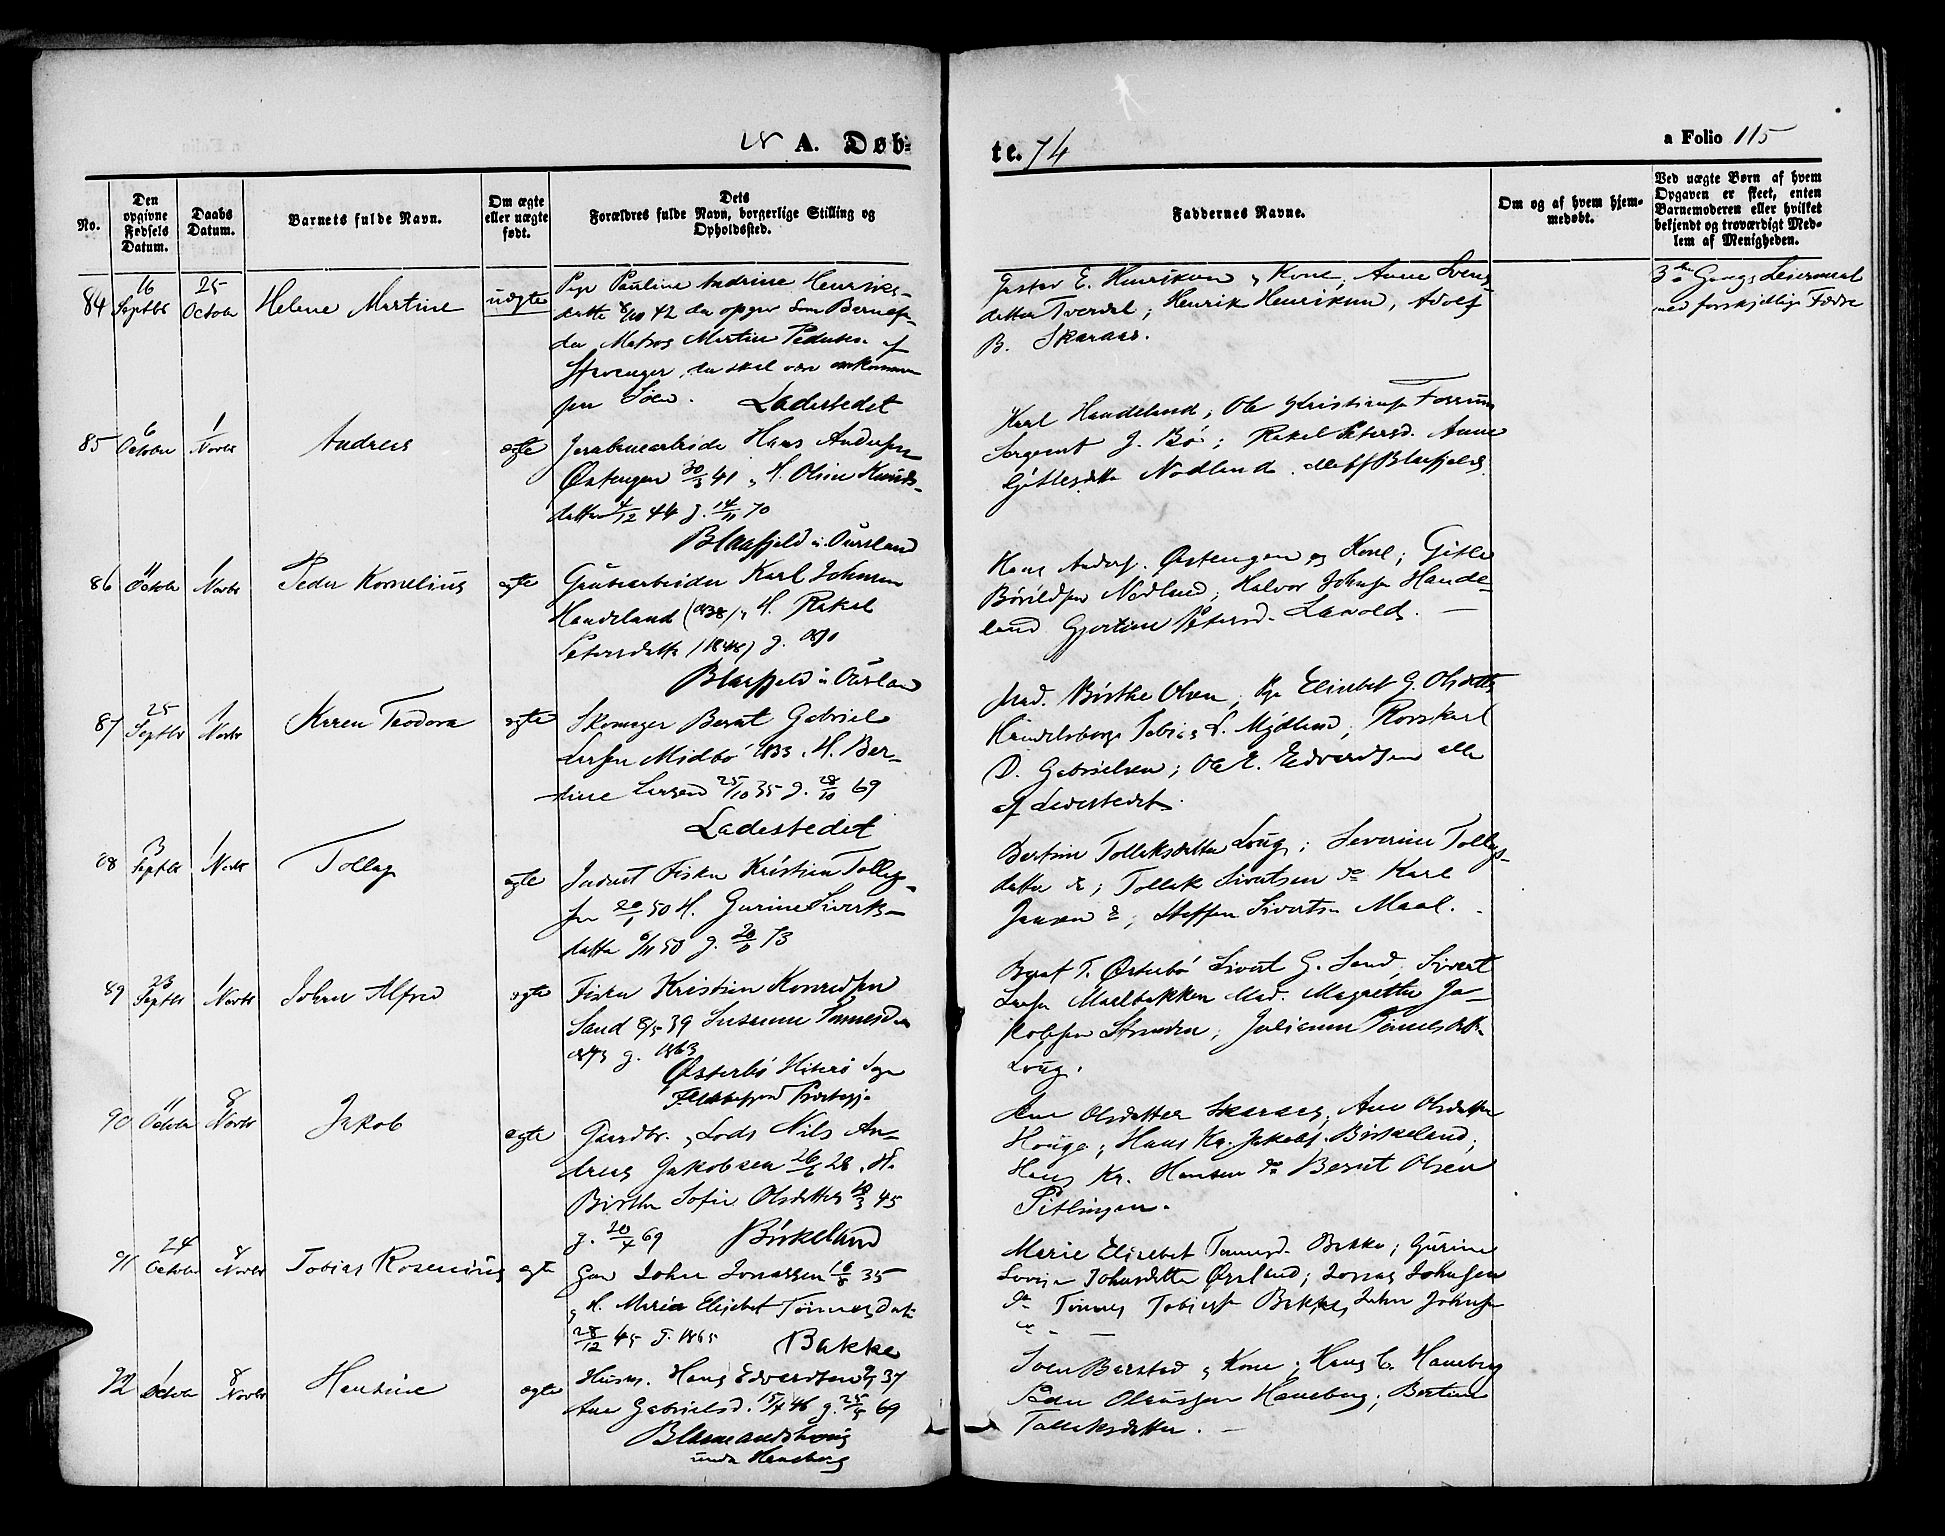 18 A. Døb-
te. 74
a Folio 115
No.
Den opgivne Fødsels Datum.
Daabs Datum.
Barnets fulde Navn.
Om ægte eller uægte født.
Dets
Forældres fulde Navn, borgerlige Stilling og Opholdssted.
Faddernes Navne.
Om og af hvem hjem-
medøbt.
Ved uægte Børn af hvem
Opgaven er skeet, enten
Barnemoderen eller hvilket
bekjendt og troværdigt Med-
lem af Menigheden.
84 16 Septbr 25 October Helene Martine uægte
Pige Pauline Andrine Henriks-
datter 8/10 42 der opgiver som Barnefa-
der Matros Martin Pedersen af
Stavanger, der skal være omkommen
paa Søen. Ladestedet
E. Henriksen & Kone, Anne Svens
datter Tverdal; Henrik Henriksen, Adolf
B. Skaraas.
3die Gangs Leiermaal
med forskjellige Fædre
85 6 October 1 Novbr Andreas ægte
Hans Andersen
Østengen 30/3 41, H. Oline Knuds-
datter 4/12 44 g. 14/11 70
Blaafjeld i Oursland
Karl Handeland; Ole Kristiansen
Sergeant J. Bø; Rakel Petersd. Anne
Nodland. Blaafjeld
86 11 October 1 Novbr Peder Kornelius ægte
Grubearbeider Karl Johnsen
Handeland (1838), H. Rakel
Petersdatter (1848) g. 1870
Blaafjeld i Oursland
Hans Anders. Østengen og Kone; Gitle
Nodland, Halvor Johnsen Hande-
land Gjertine Petersd.
87 25 Septbr 1 Novbr Karen Teodora ægte
Skomager Bernt Gabriel
Larsen Midbø 1833, H. Ber-
tine Larsen 25/10 35 g. 28/10 69
Ladestedet
Mad. Birthe Olsen, Pge Elisabet G. Olsdatter
Handelsborger Tobias L. Mydland,
D. Gabrielsen; Ole E. Edvardsen alle
af Ladestedet.
88 3 Septbr 1 Novbr Tollag ægte
Inderst Fisker Kristian Tollag-
sen 20/1 50 H. Gurine Siverts-
datter 6/11 50 g. 73
Bertine Tolleksdatter Houg; Severine Tollags-
datter do; Tollak Sivertsen do Karl
Jansen do; Steffen Sivertsen Maal.
89 23 Septbr 1 Novbr Johan Alfred ægte
Fisker Kristian Konradsen
Sand 8/5 39 Susanne Tønnesd.
g. 1863
Østerbø Hiterø Sogn
Flekkefjord Prestegj.
T. Østerbø Sivert G. Sand, Sivert
Larsen Maalbakken Mad. Magrethe Ja-
kobsen Stranden; Julianne Tønnesdatter
Houg.
90 11 October 8 Novbr Jakob ægte
Gaardbr. & Lods Nils An-
dreas Jakobsen 26/6 28, H.
Birthe Sofie Olsdatter 10/3 45
g. 20/4 69 Birkeland
Ane Olsdatter Skaraas, Ane Olsdatter
Houge; Hans Kr. Jakobs. Birkeland;
Hans Kr. Hansen do Bernt Olsen
91 24 October 8 Novbr Tobias Rosenius ægte
John Jonassen 16/8 35
& H. Maria Elisabet Tønnesdatt
28/12 45 g. 1865 Bakke
Marie Elisebet Tønnesd. Bakke; Gurine
Lovise Johnsdatter Ørsland; Jonas Johnsen
do Tønnes Tobiassen Bakke, John Johnsen
do
92 1 October 8 Novbr Hansine ægte
Husm. Hans Edvardsen 37
Ane Gabrielsd. 46 g. 69
under Haneberg
Sven Barstad & Kone; Hans C. Haneberg
Peder Olaussen Haneberg; Bertine
Tolleksdatter.